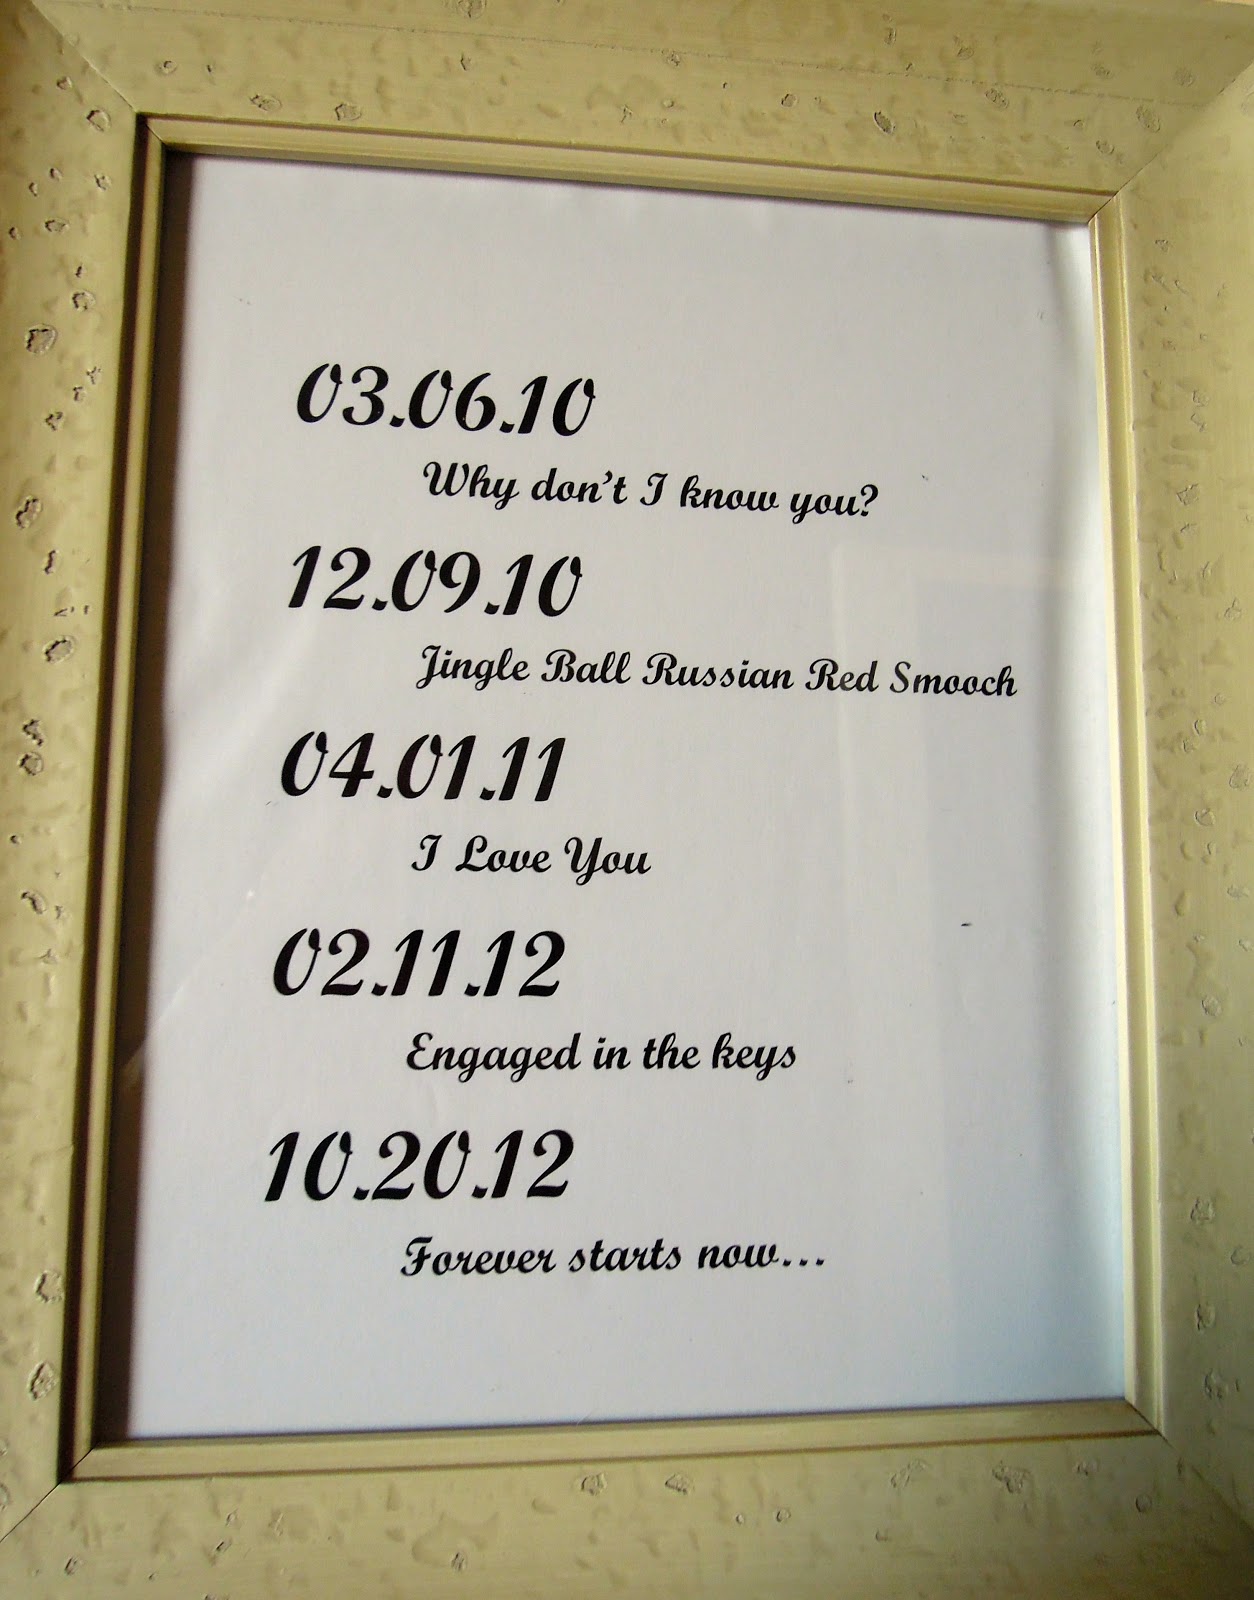 03.06.10
Why don't I know you?
12.09.10
Jingle Ball Russian Red Smooch
04.01.11
I Love You
02.11.12
Engaged in the keys
10.20.12
Forever starts now...